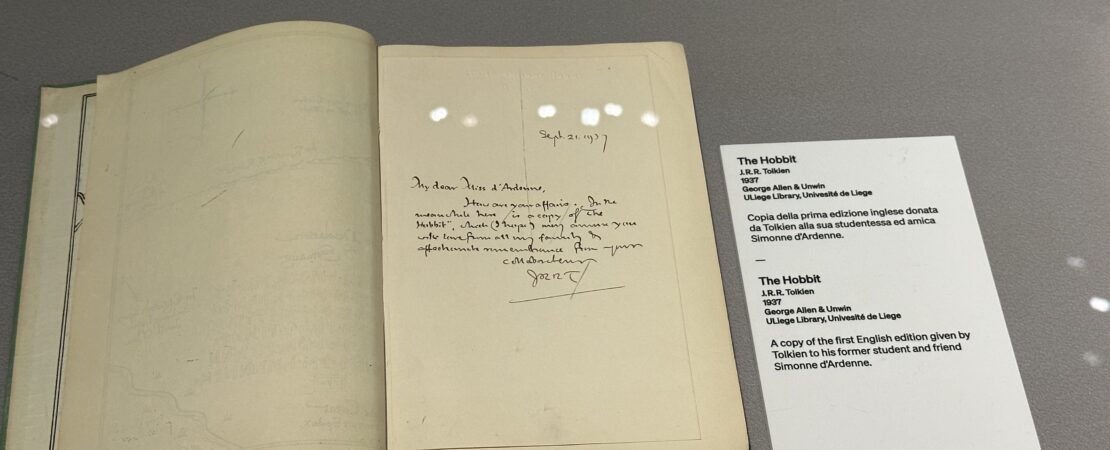 Sept. 21. 1937
My dear Miss d'Ardenne,
How are your affairs. In the
meanwhile here is a copy of 'The
Hobbit', which (I hope) may amuse you
with love from all my family &
affectionate remembrance from your
collaborateur
JRRT
The Hobbit
J.R.R. Tolkien
1937
George Allen & Unwin
ULiege Library, Univesité de Liege
Copia della prima edizione inglese donata
da Tolkien alla sua studentessa ed amica
Simonne d'Ardenne.
—
The Hobbit
J.R.R. Tolkien
1937
George Allen & Unwin
ULiege Library, Univesité de Liege
A copy of the first English edition given by
Tolkien to his former student and friend
Simonne d'Ardenne.